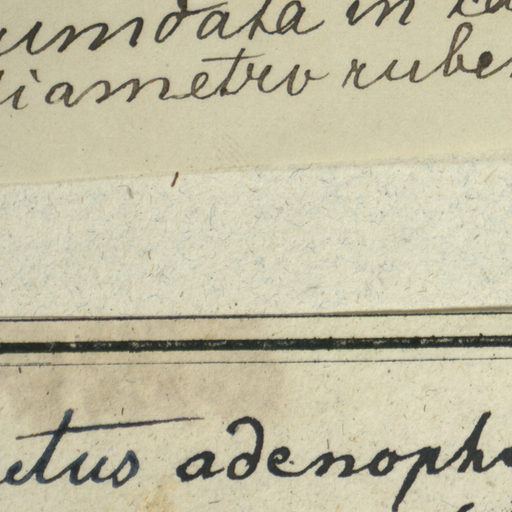 umdata in
diametro rube
etus adenoph